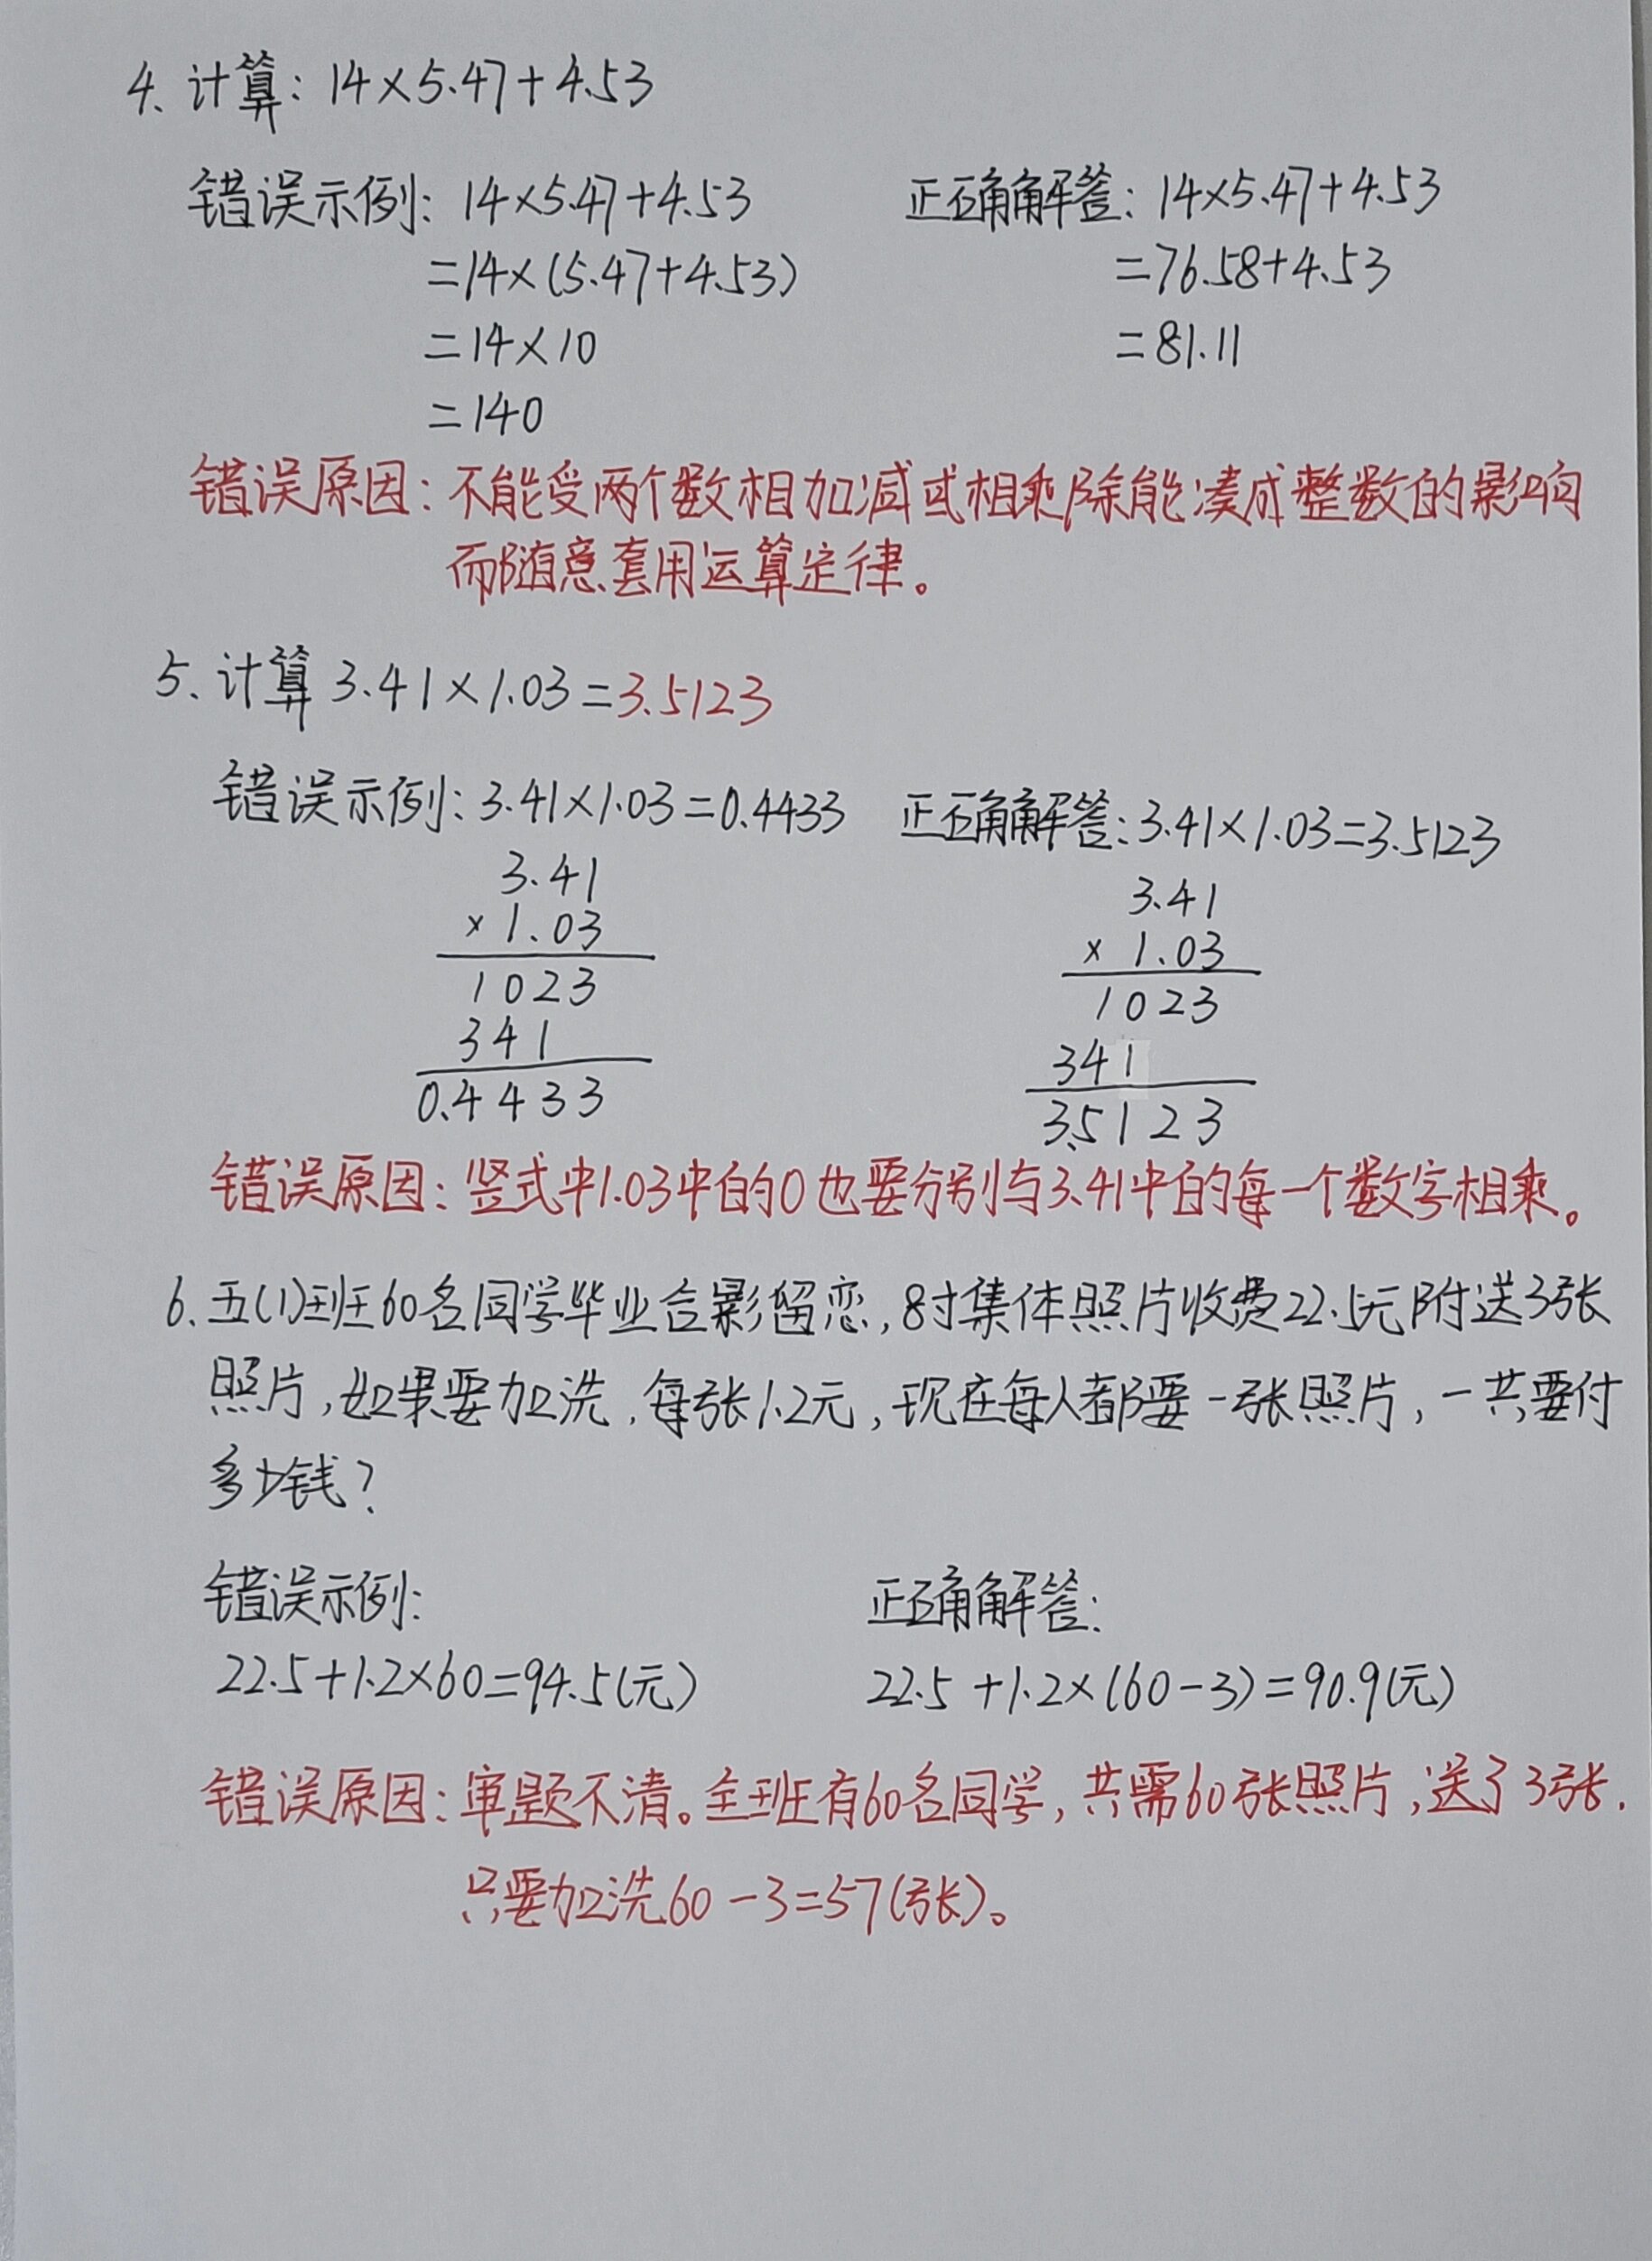 4. 计算: 14×5.47+4.53
错误示例: 14×5.47+4.53 正确解答: 14×5.47+4.53
=14×(5.47+4.53) =76.58+4.53
=14×10 =81.11
=140
错误原因: 不能受两个数相加减或相乘除能凑成整数的影响
而随意套用运算定律。
5. 计算 3.41×1.03=3.5123
错误示例: 3.41×1.03=0.4433 正确解答: 3.41×1.03=3.5123
3.41 3.41
× 1.03 × 1.03
1023 1023
341 341
0.4433 3.5123
错误原因: 竖式中1.03中的0也要分别与3.41中的每一个数字相乘。
6. 五(1)班60名同学毕业合影留恋, 8寸集体照片收费22.5元附送3张
照片, 如果要加洗, 每张1.2元, 现在每人都要一张照片, 一共要付
多少钱?
错误示例: 正确解答:
22.5+1.2×60=94.5(元) 22.5+1.2×(60-3)=90.9(元)
错误原因: 审题不清。全班有60名同学, 共需60张照片, 送了3张.
只要加洗60-3=57(张)。